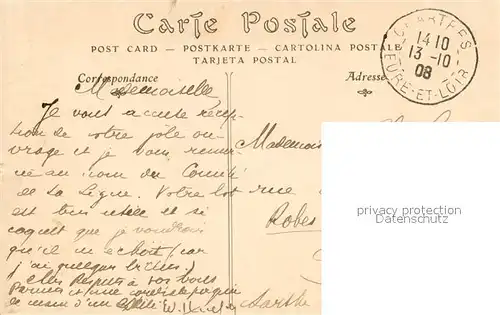 Carte Postale
POST CARD — POSTKARTE — CARTOLINA POSTALE
TARJETA POSTAL
Correspondance
Adresse
CHARTRES
14 10
13 -10
08
EURE-ET-LOIR
Mademoiselle
Je vous accuse récep-
tion de votre joli ou-
vrage et je vous remer-
cie au nom du Comité
de la Ligue. Votre lot
est très utile et si
coquet que je voudrais
qu'il m'échoit (car
j'ai quelques billets)
Mes Respects à vos
Parents et une cordiale poignée
de main d'un
Mademois
rue
Robes
Sarthe
privacy protection
Datenschutz